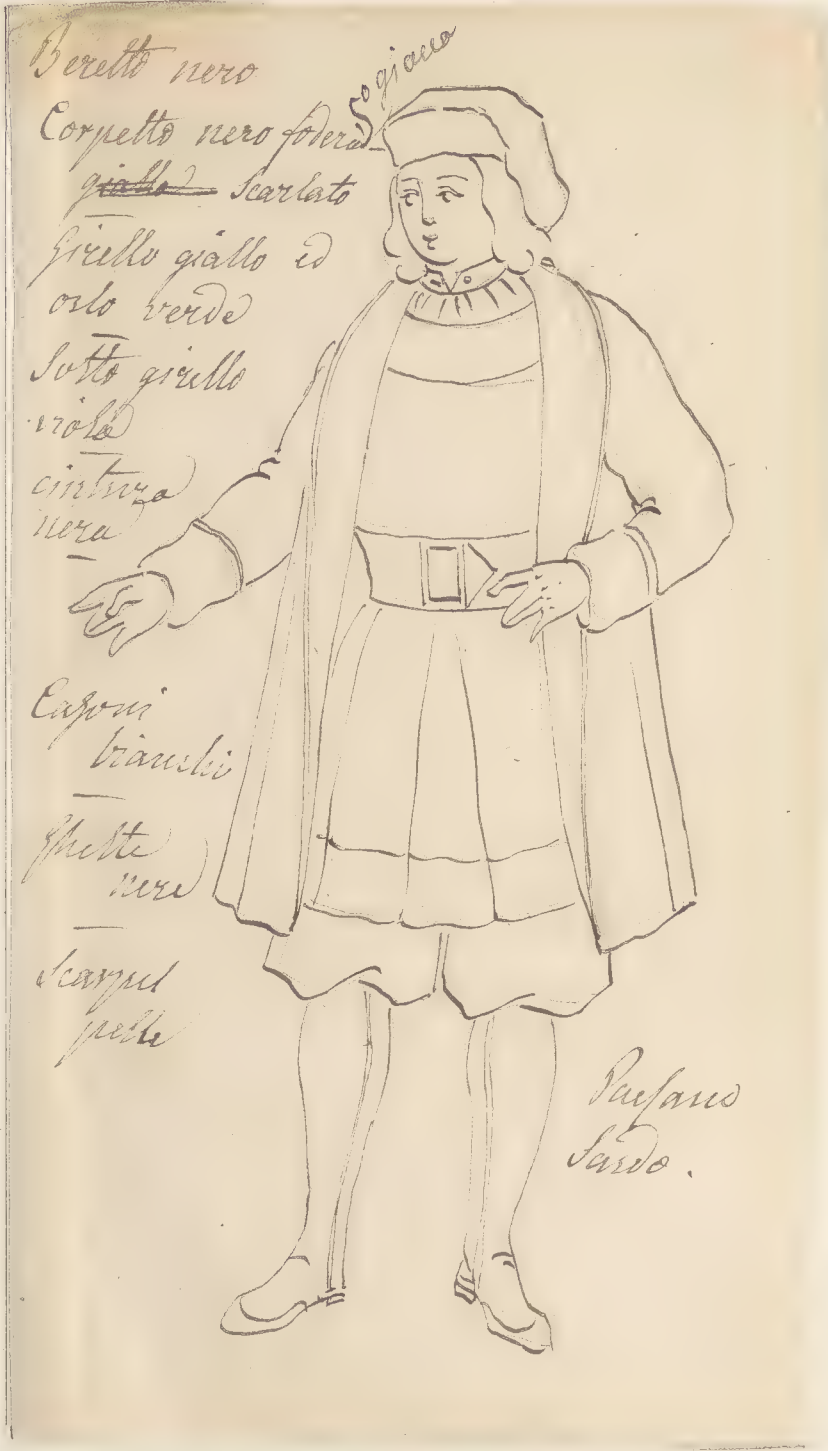 Beretto nero
Corpetto nero foderà-
giallo scarlato
Girello giallo ed
orlo verde
Sotto girello
violà
cintura
nera
Cazoni
bianchi
Ghette
nere
Scarpe
pelle
Paesano
Sardo.